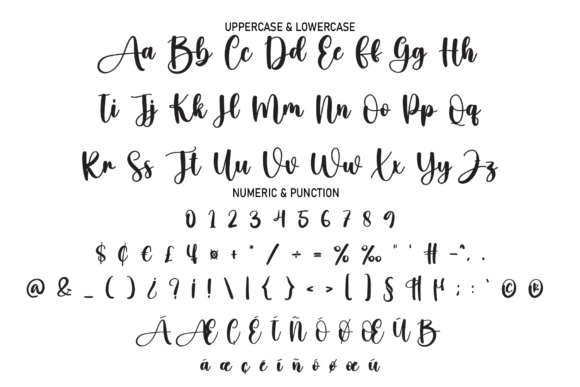 UPPERCASE & LOWERCASE
Aa Bb Cc Dd Ee Ff Gg Hh
Ii Jj Kk Ll Mm Nn Oo Pp Qq
Rr Ss Tt Uu Vv Ww Xx Yy Zz
NUMERIC & PUNCTION
0 1 2 3 4 5 6 7 8 9
$ ¢ € £ ¥ ¤ + * / ÷ = % ‰ " ' # ~ ^ , .
@ & _ ( ) ¿ ? ¡ ! \ | { } < > [ ] § ¶ µ ; : ` © ®
Á Æ Ç É Í Ñ Ó Ø Œ Ú ß
á æ ç é í ñ ó ø œ ú